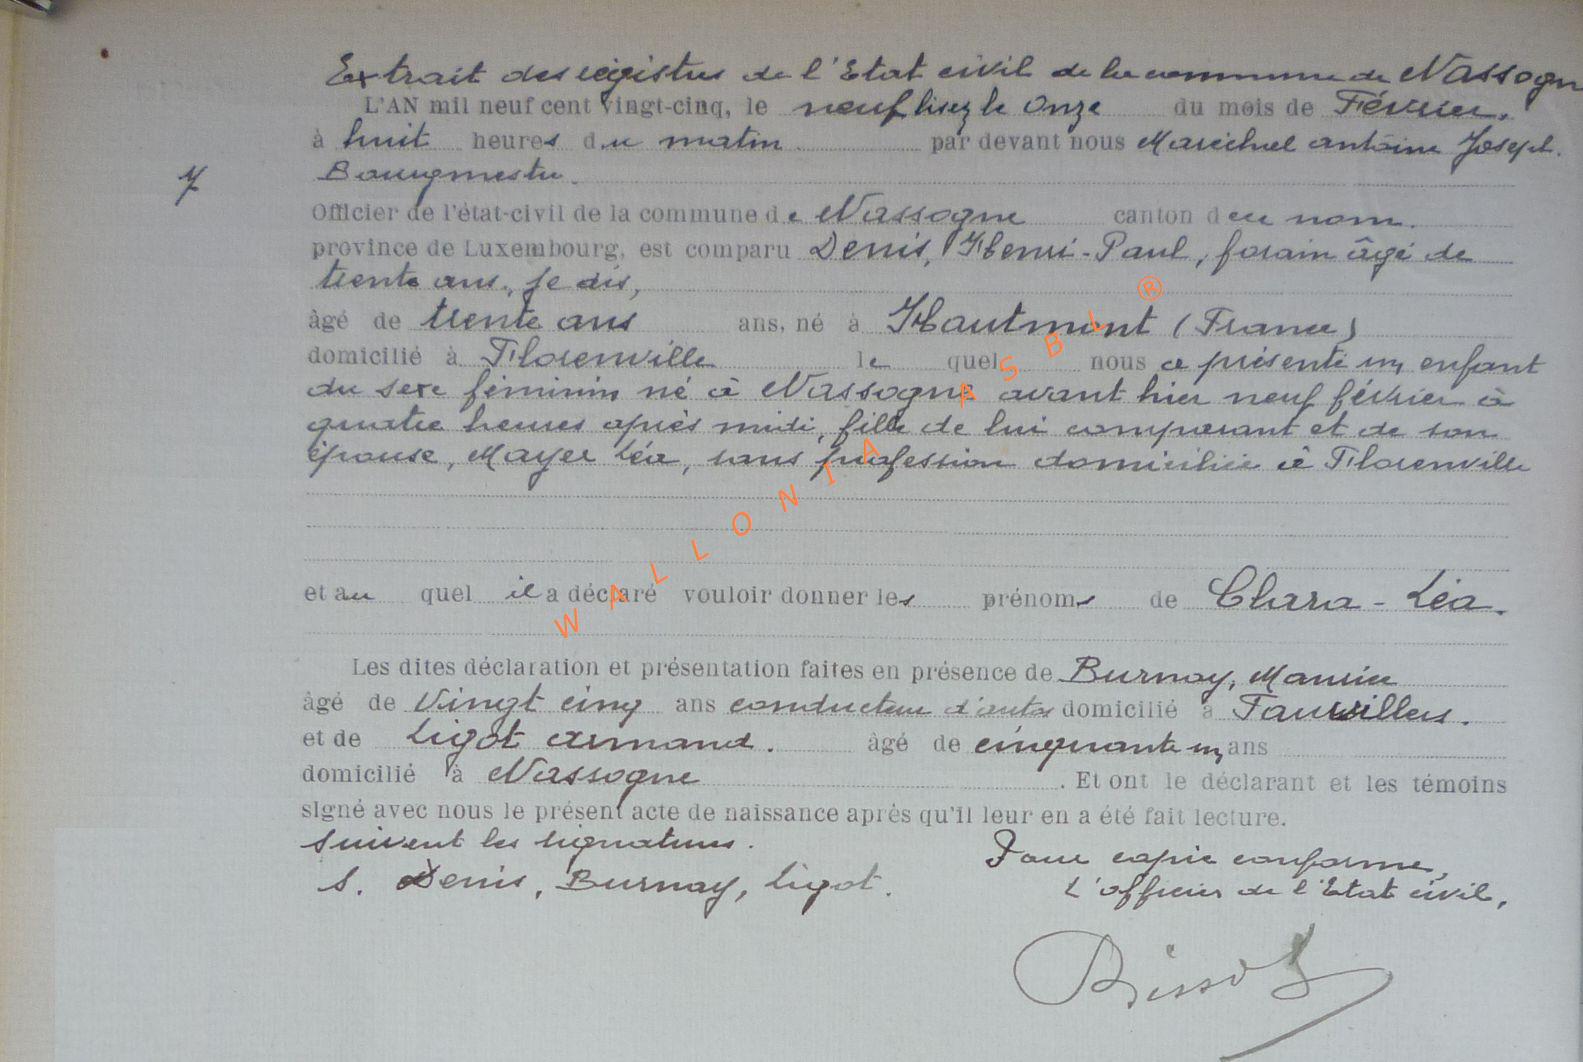 Extrait des registres de l'Etat civil de la commune de Nassogn
L'AN mil neuf cent vingt-cinq, le neuf lisez le onze du mois de Février,
à huit heures du matin par devant nous Maréchal Antoine Joseph.
7 Bourgmestre.
Officier de l'état-civil de la commune de Nassogne canton du nom.
province de Luxembourg, est comparu Denis, Henri-Paul, forain âgé de
trente ans, je dis,
âgé de trente ans ans, né à Hautmont (France)
domicilié à Florenville lequel nous a présenté un enfant
du sexe féminin né à Nassogne avant hier neuf février à
quatre heures après midi, fille de lui comparant et de son
épouse, Mayer Léa, sans profession domiciliée à Florenville
et au quel il a déclaré vouloir donner les prénoms de Clara - Léa.
Les dites déclaration et présentation faites en présence de Burnay, Maurice
âgé de vingt cinq ans conducteur d'autos domicilié à Fauvillers.
et de Ligot Armand. âgé de cinquante un ans
domicilié à Nassogne. Et ont le déclarant et les témoins
signé avec nous le présent acte de naissance après qu'il leur en a été fait lecture.
Suivent les signatures. Pour copie conforme,
s. Denis, Burnay, Ligot. L'officier de l'Etat civil,
WALLONIA ASBL ®